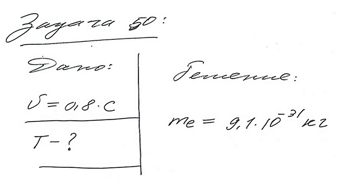 Задача 50:
Дано:
υ = 0,8·c
T - ?
Решение:
me = 9,1·10⁻³¹ кг